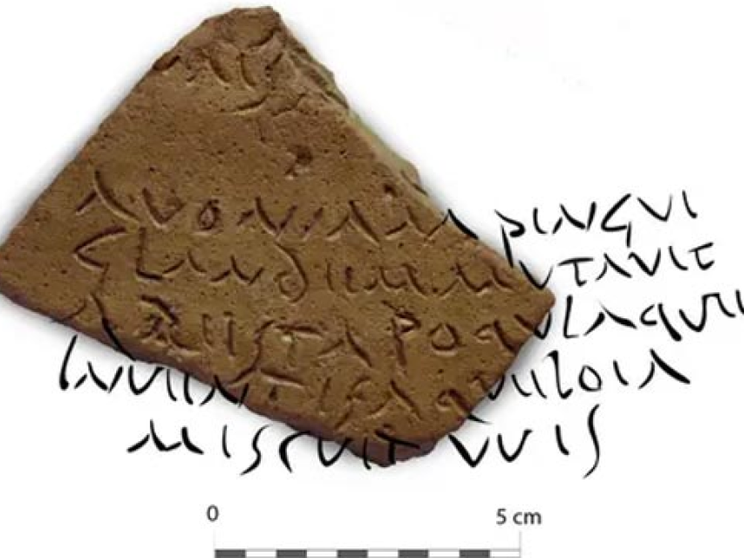 AVONIAM PINGVI
GLANDEM MVTAVIT
ARESTA POQVLAQVE
INVENTISAQVELOIA
MISCVIT VVIS
0 5 cm